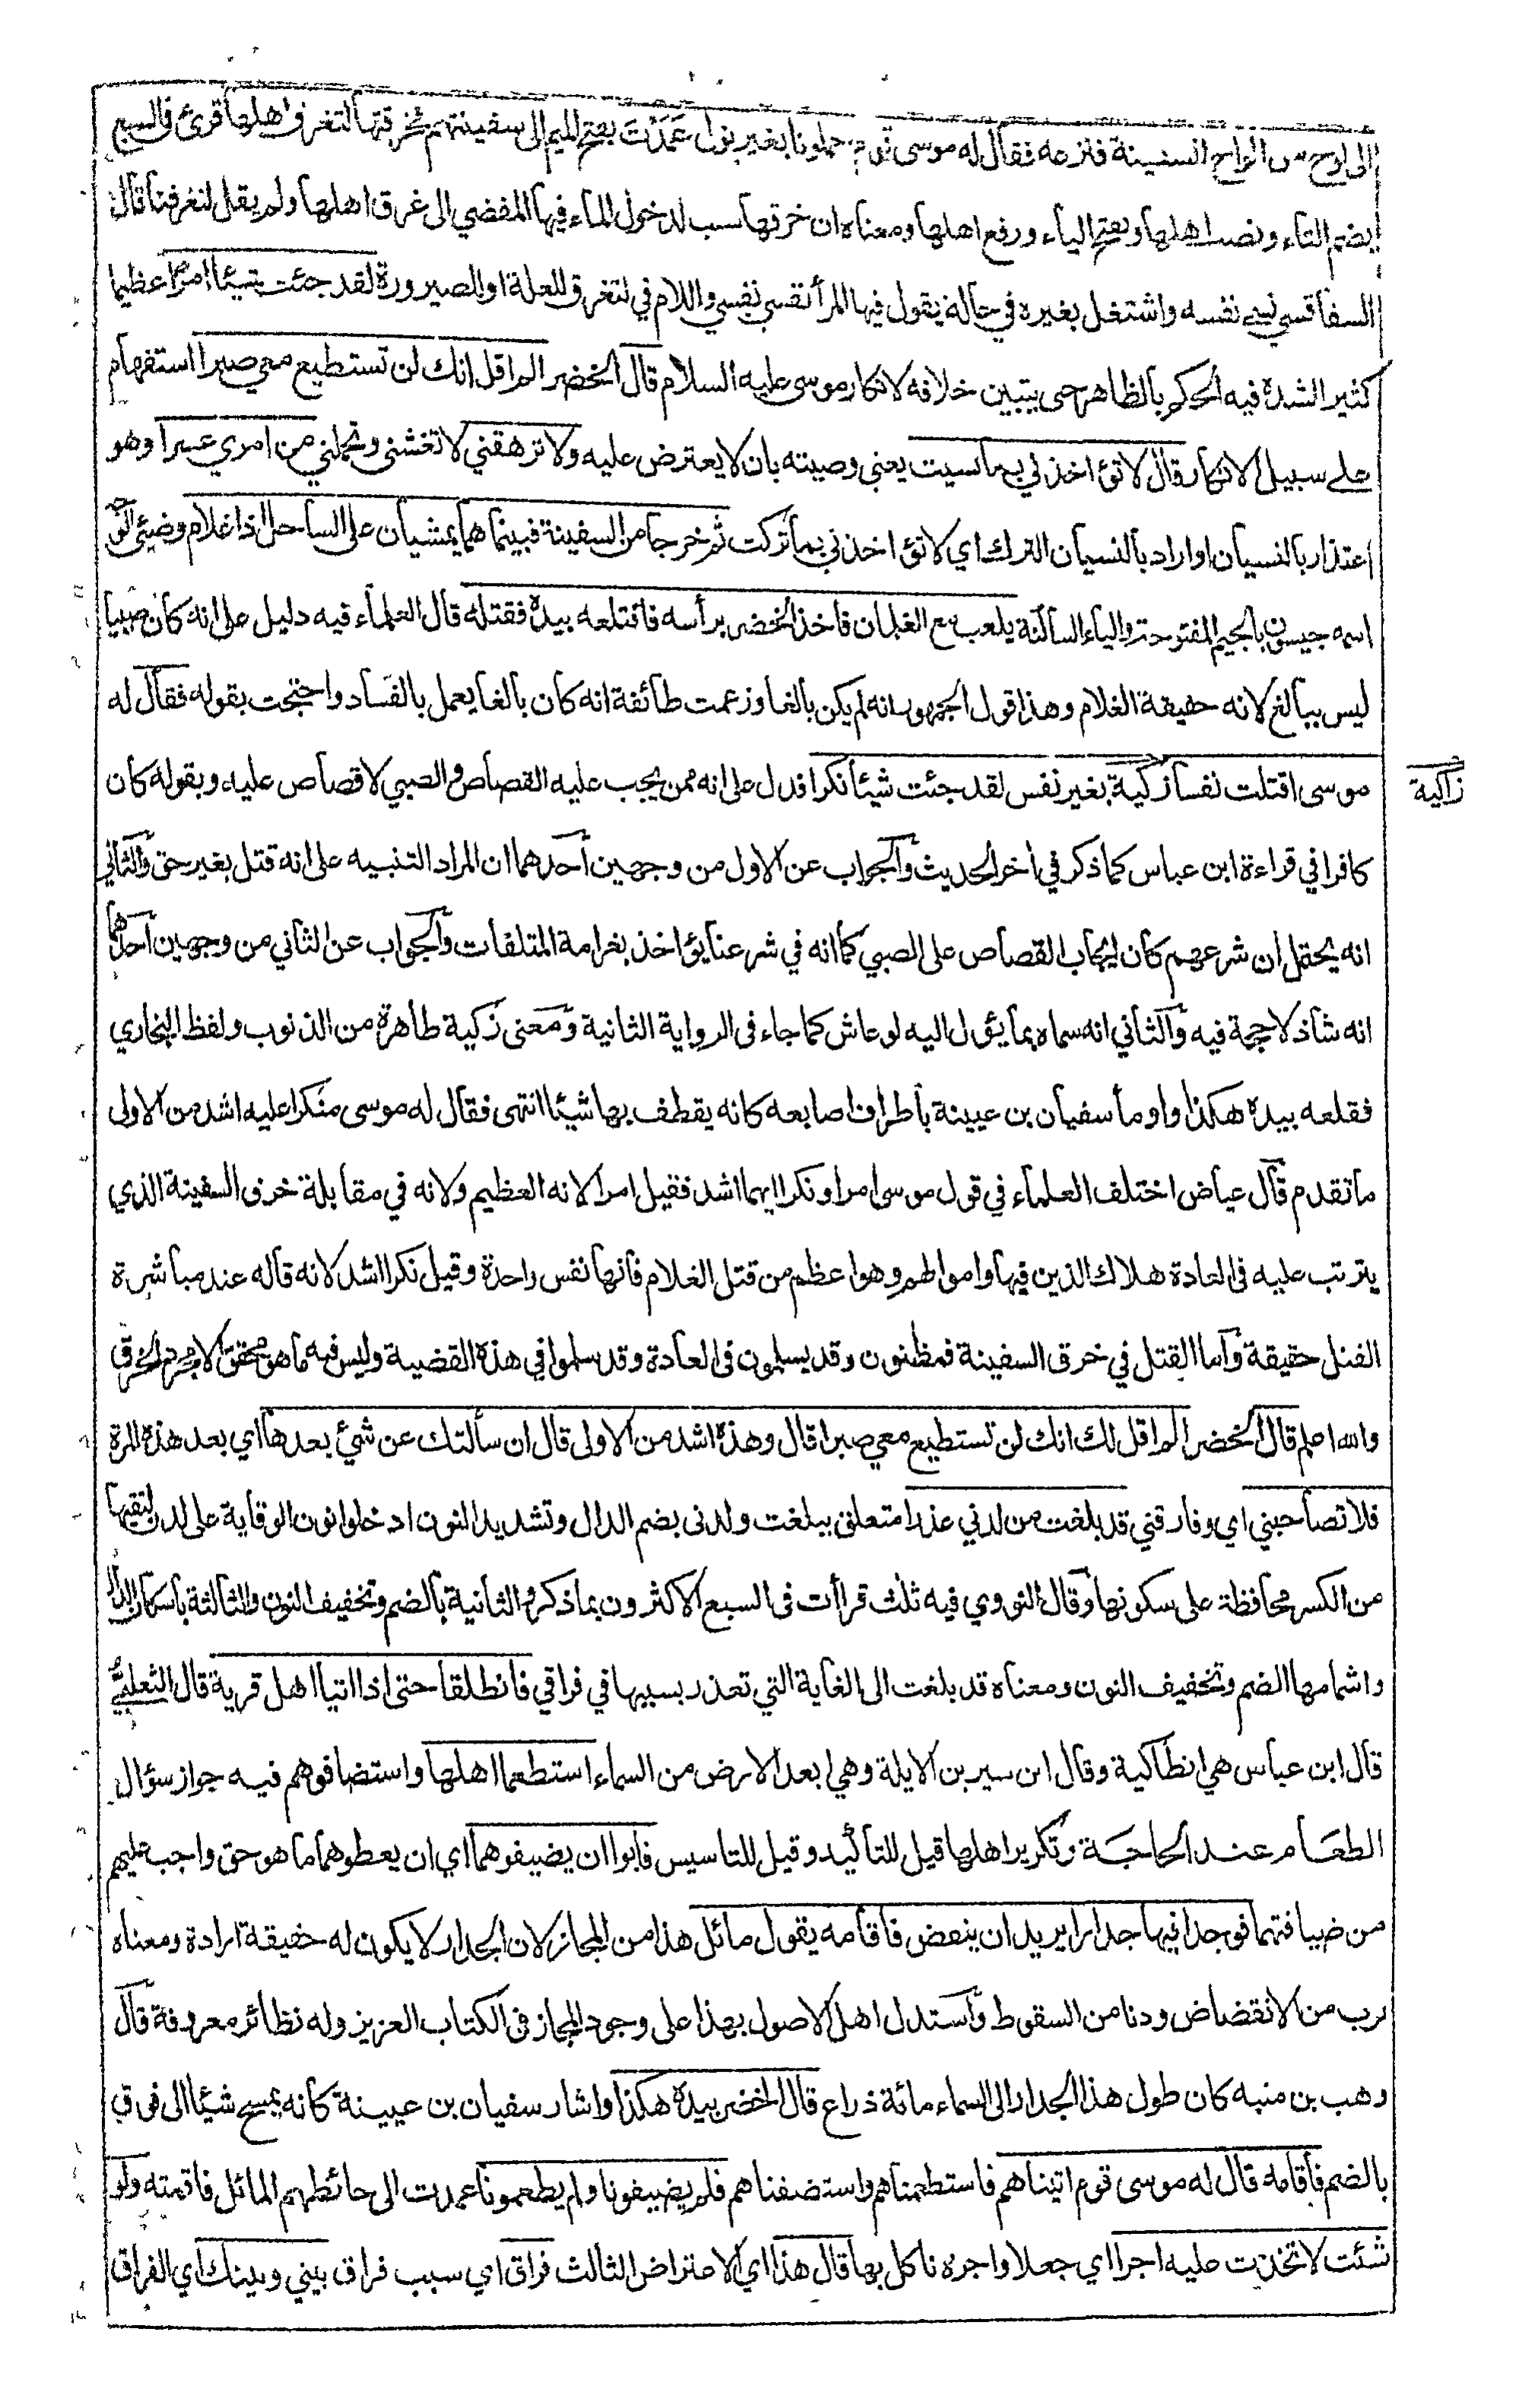 الى لوح من الواح السفينة فنزعه فقال له موسى قوم حملونا بغير نول عَمَدْتَ بفتح الميم الى سفينتهم فخرقتها لتغرق اهلها قرئ فى السبع
بضم التاء ونصب اهلها وبفتح الياء ورفع اهلها ومعناه ان خرقها سبب لدخول الماء فيها المفضي الى غرق اهلها ولم يقل لتغرقنا قال
السفاقسي نسي نفسه واشتغل بغيره في حالة يقول فيها المرأ نفسي نفسي واللام في لتغرق للعلة او للصيرورة لقد جئت شيئا امرا عظيما
كثير الشدة فيه الحكم بالظاهر حتى يتبين خلافه لانكار موسى عليه السلام قال الخضر الم اقل انك لن تستطيع معي صبرا استفهام
على سبيل الانكار قال لا تؤاخذني بما نسيت يعني وصيته بان لا يعترض عليه ولا ترهقني لا تغشني وتحملني من امري عسرا وهو
اعتذار بالنسيان او اراد بالنسيان الترك اي لا تؤاخذني بما تركت ثم خرجا من السفينة فبينما هما يمشيان على الساحل اذا غلام وضيئ الوجه
اسمه جيسون بالجيم المفتوحة والياء الساكنة يلعب مع الغلمان فاخذ الخضر برأسه فاقتلعه بيده فقتله قال العلماء فيه دليل على انه كان صبيا
ليس ببالغ لانه حقيقة الغلام وهذا قول الجمهور انه لم يكن بالغا وزعمت طائفة انه كان بالغا يعمل بالفساد واحتجت بقوله فقال له
موسى اقتلت نفسا زكية بغير نفس لقد جئت شيئا نكرا فدل على انه ممن يجب عليه القصاص والصبي لا قصاص عليه وبقوله كان
زاكية
كافرا في قراءة ابن عباس كما ذكر في أخر الحديث والجواب عن الاول من وجهين أحدهما ان المراد التنبيه على انه قتل بغير حق والثاني
انه يحتمل ان شرعهم كان ايجاب القصاص على الصبي كما انه في شرعنا يؤاخذ بغرامة المتلفات والجواب عن الثاني من وجهين احدهما
انه شاذ لا حجة فيه والثاني انه سماه بما يؤول اليه لو عاش كما جاء فى الرواية الثانية ومعنى زكية طاهرة من الذنوب ولفظ البخاري
فقلعه بيده هكذا واومأ سفيان بن عيينة بأطراف اصابعه كانه يقطف بها شيئا انتهى فقال له موسى منكرا عليه اشد من الاولى
ما تقدم قال عياض اختلف العلماء في قول موسى امرا ونكرا ايهما اشد فقيل امرا لانه العظيم ولانه في مقابلة خرق السفينة الذي
يترتب عليه فى العادة هلاك الذين فيها واموالهم وهو اعظم من قتل الغلام فانها نفس واحدة وقيل نكرا اشد لانه قاله عند مباشرة
القتل حقيقة واما القتل في خرق السفينة فمظنون وقد يسلمون فى العادة وقد سلموا في هذه القضية وليس فيه ما هو محقق الا مجرد الخرق
والله اعلم قال الخضر الم اقل لك انك لن تستطيع معي صبرا قال وهذه اشد من الاولى قال ان سألتك عن شئ بعدها اي بعد هذه المرة
فلا تصاحبني اي وفارقني قد بلغت من لدني عذرا متعلق ببلغت ولدنى بضم الدال وتشديد النون ادخلوا نون الوقاية على لدن لتقيها
من الكسر محافظة على سكونها وقال النووي فيه ثلث قرأات فى السبع الاكثرون بما ذكر والثانية بالضم وتخفيف النون والثالثة باسكان الدال
واشمامها الضم وتخفيف النون ومعناه قد بلغت الى الغاية التي تعذر بسببها في فراقي فانطلقا حتى اذا اتيا اهل قرية قال الثعلبي
قال ابن عباس هي انطاكية وقال ابن سيرين الايلة وهي ابعد الارض من السماء استطعما اهلها واستضافوهم فيه جواز سؤال
الطعام عند الحاجة وتكرير اهلها قيل للتأكيد وقيل للتاسيس فابوا ان يضيفوهما اي ان يعطوهما ما هو حق واجب عليهم
من ضيافتهما فوجدا فيها جدارا يريد ان ينقض فاقامه يقول مائل هذا من المجاز لان الجدار لا يكون له حقيقة ارادة ومعناه
قرب من الانقضاض ودنا من السقوط واستدل اهل الاصول بهذا على وجود المجاز فى الكتاب العزيز وله نظائر معروفة قال
وهب بن منبه كان طول هذا الجدار الى السماء مائة ذراع قال الخضر بيده هكذا واشار سفيان بن عيينة كانه يمسح شيئا الى فوق
بالضم فأقامه قال له موسى قوم اتيناهم فاستطعمناهم واستضفناهم فلم يضيفونا ولم يطعمونا عمدت الى حائطهم المائل فاقمته ولو
شئت لاتخذت عليه اجرا اي جعلا واجرة ناكل بها قال هذا اي الاعتراض الثالث فراق اي سبب فراق بيني وبينك اي الفراق